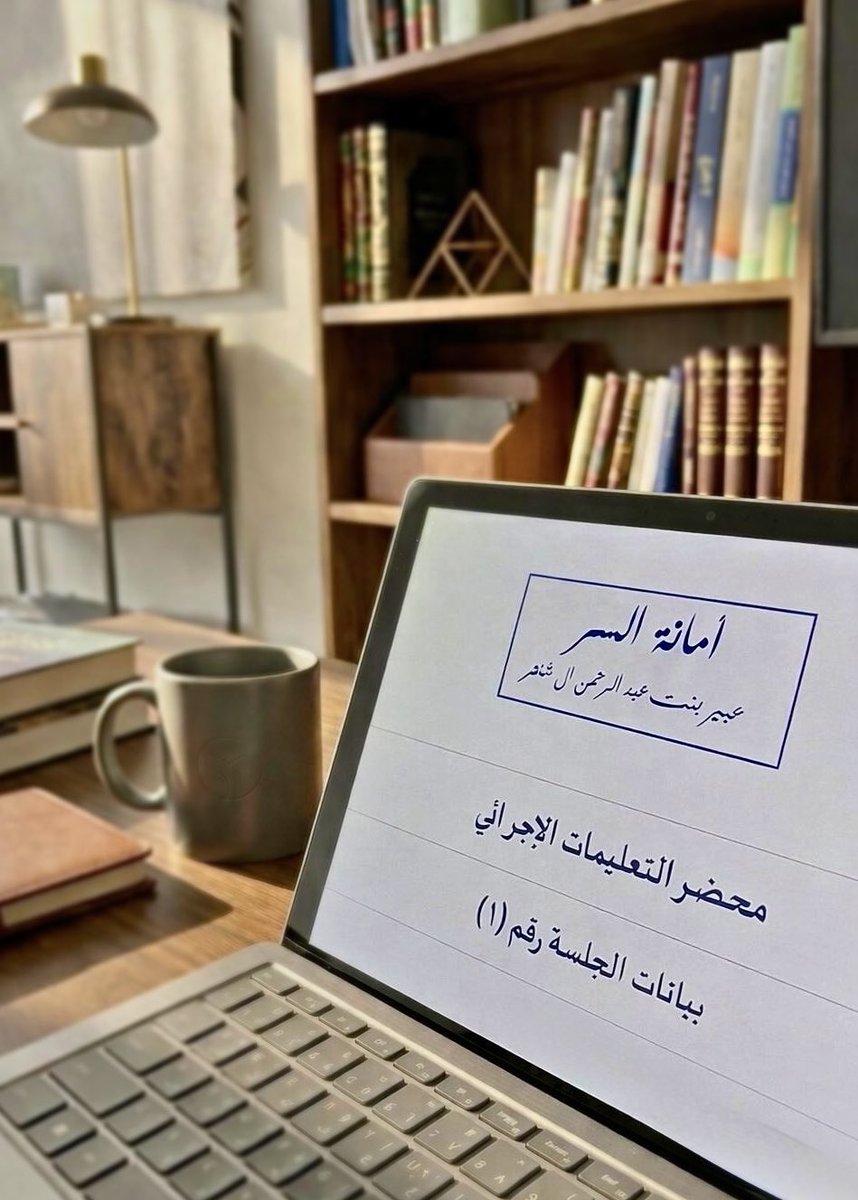 أمانة السر
عبير بنت عبد الرحمن ال
محضر التعليمات الإجرائي
بيانات الجلسة رقم (١)